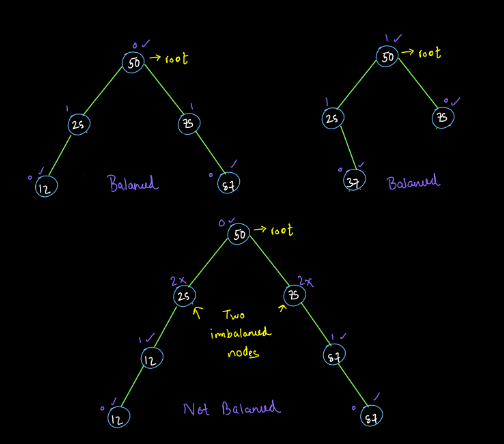 0 ✓
50 → root
1
25
1
75
0 ✓
12
0 ✓
87
Balanced
1 ✓
50 → root
1
25
0 ✓
75
0 ✓
37
Balanced
0 ✓
50 → root
2 x
25
2 x
75
Two
imbalanced
nodes
1 ✓
12
1 ✓
87
0 ✓
12
0 ✓
87
Not Balanced